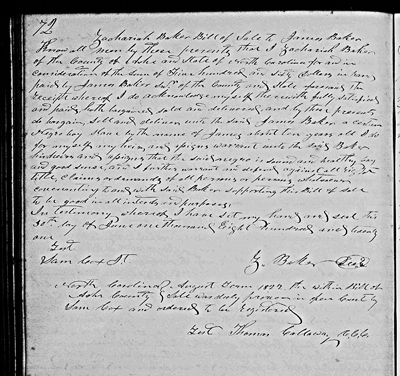 72
Zachariah Baker Bill of Sale to James Baker
Know all men by these presents that I Zachariah Baker
of the County of Ashe and State of North Carolina for and in
consideration of the Sum of five hundred and sixty dollars in hand
paid by James Baker of the County and State aforesaid the
receipt whereof I do acknowledge myself therewith fully satisfied
and paid hath bargained sold and delivered and by these presents
do bargain, sell and deliver unto the said James Baker a certain
Negro boy Slave by the name of James about ten years old I do
for myself my heirs and assigns warrant unto the said Baker
his heirs and assigns that the said negro is sound and healthy
and good sense, and I further warrant and defend against all
title, claims or demands of all persons or persons whatsoever
covenanting to and with said Baker supporting this Bill of Sale
to be good in all intents and purposes.
In testimony whereof I have set my hand and seal this
30th day of June one thousand Eight hundred and twenty
one
Test
Sam Cox Jt Z. Baker Seal
North Carolina August Term 1822 the within Bill of
Ashe County Sale was duly proven in open Court by
Sam Cox and ordered to be registered
Test Thomas Calloway C.C.C.